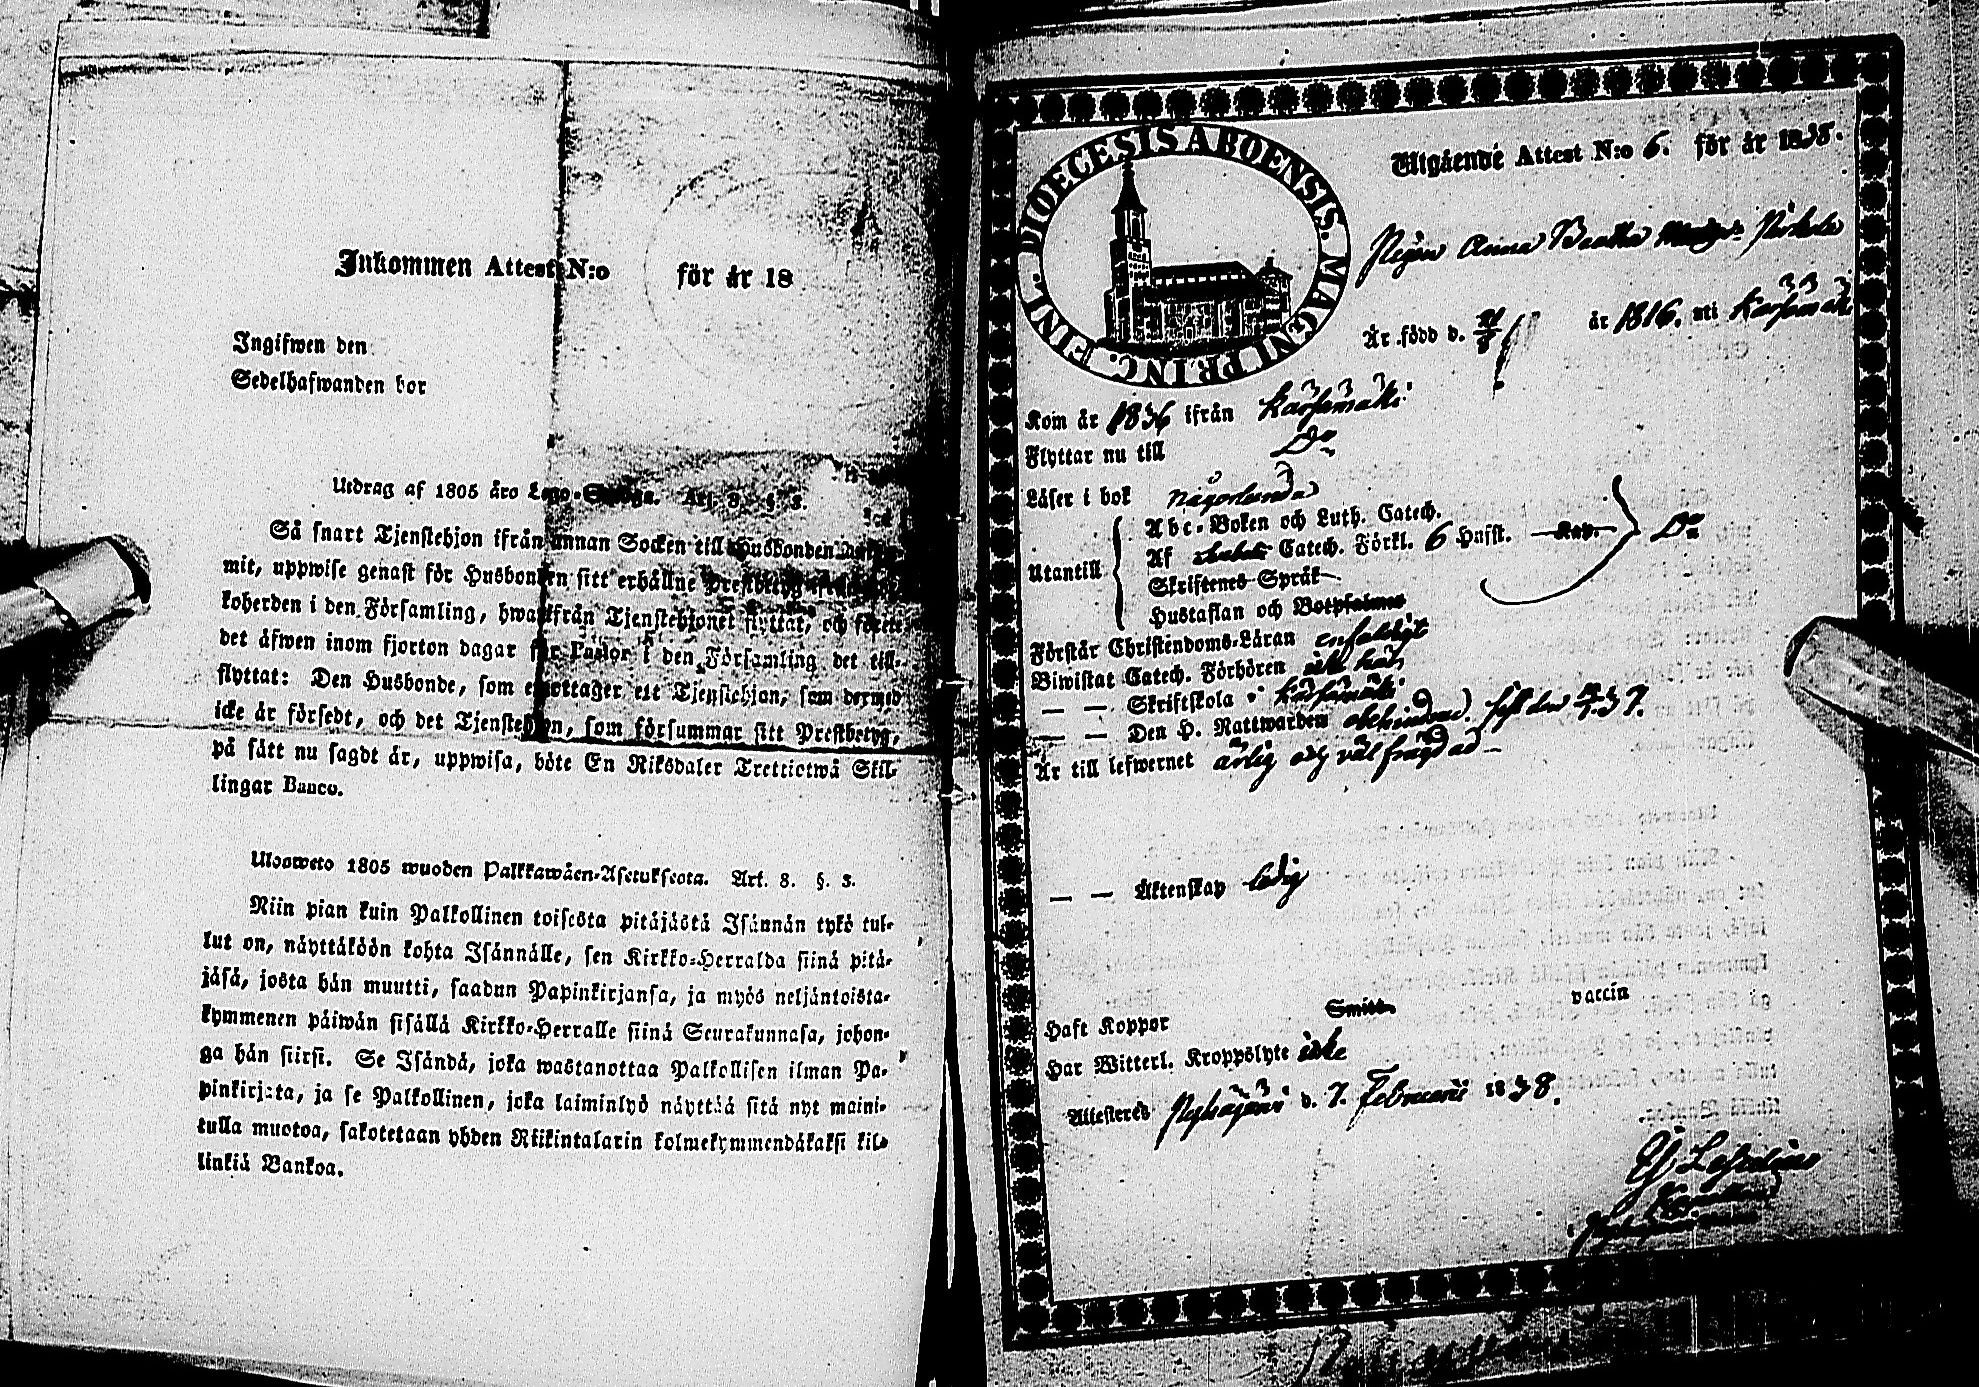 Inkommen Attest N:o för år 18
Ingifwen den
Sedelhafwanden bor
Utdrag af 1805 års Lego-Stadga. Art. 8. §. 3.
Så snart Tjenstehjon ifrån annan Socken till Husbonden
mit, uppwise genast för Husbonden sitt erhållne Prestbetyg
koherden i den Församling, hwarifrån Tjenstehjonet flyttat, och förete
det äfwen inom fjorton dagar för Pastor i den Församling det till-
flyttat: Den Husbonde, som emottager ett Tjenstehjon, som dermed
icke är försedt, och det Tjenstehjon, som försummar sitt Prestbetyg,
på sätt nu sagdt är, uppwisa, böte En Riksdaler Trettiotwå Skil-
lingar Banco.
Ulosweto 1805 wuoden Palkkawäen-Asetuksesta. Art. 8. §. 3.
Niin pian kuin Palkollinen toisesta pitäjästä Isännän tykö tul-
lut on, näyttäköön kohta Isännälle, sen Kirkko-Herralda siinä pitä-
jäsä, josta hän muutti, saadun Papinkirjansa, ja myös neljäntoista-
kymmenen päiwän sisällä Kirkko-Herralle siinä Seurakunnasa, johon-
ga hän siirsi. Se Isändä, joka wastanottaa Palkollisen ilman Pa-
pinkirjata, ja se Palkollinen, joka laiminlyö näyttää sitä nyt maini-
tulla muotoa, sakotetaan yhden Riikintalarin kolmekymmendäkaksi kil-
linkiä Bankoa.
DIOECESIS ABOENSIS. MAGNI PRINC. FINL.
Utgående Attest N:o 6. för år 1838.
Pigan Anna Beatha
Är född d. år 1816. uti Kärsämäki
Kom år 1836 ifrån Kärsämäki
Flyttar nu till Do
Läser i bok någorlunda
Utantill
Abc-Boken och Luth. Catech.
Af Catech. Förkl. 6 Hufst. Kap. Do
Skriftenes Språk
Hustaflan och Botpsalmer
Förstår Christendoms-Läran enfaldigt
Biwistat Catech. Förhören
— — Skriftskola i Kärsämäki
— — Den H. Nattwarden obehindrad. sist den 37.
Är till lefwernet ärlig och väl frägdad
— — Äktenskap ledig
Haft Koppor Smitt. vaccin
Har Witterl. Kroppslyte icke
Attesteres Pyhäjärvi d. 7. Februarii 1838.